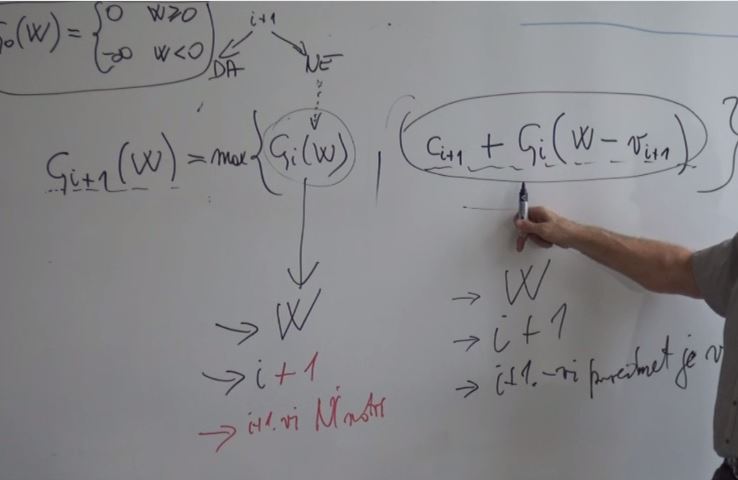 G₀(W) = { 0 W≥0
-∞ W<0
i+1
DA NE
G_{i+1}(W) = max { G_i(W) , ( c_{i+1} + G_i(W - v_{i+1}) ) }
→ W
→ i+1
→ i+1.vi Ni notr
→ W
→ i+1
→ i+1.-vi predmet je v